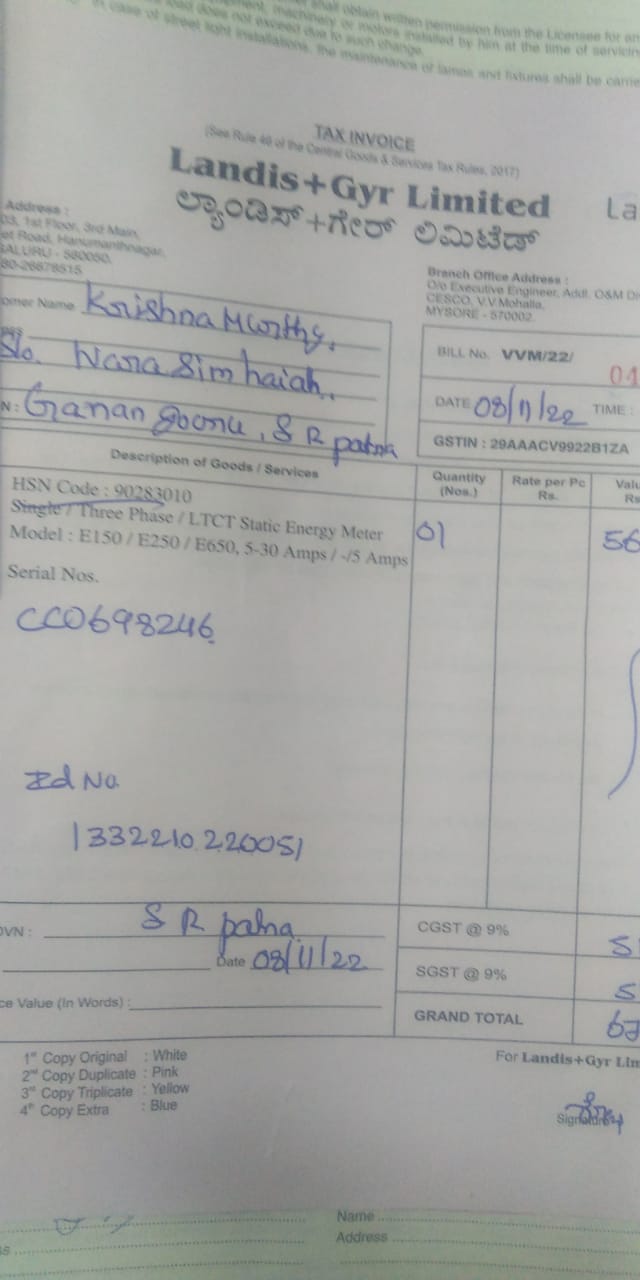 shall obtain written permission from the Licensee for an
machinery or motors installed by him at the time of servicin
load does not exceed due to such change.
in case of street light installations. The maintenance of lamps and fixtures shall be carrie
TAX INVOICE
(See Rule 46 of the Central Goods & Services Tax Rules, 2017)
Landis+Gyr Limited
La
ಲ್ಯಾಂಡಿಸ್+ಗೇರ್ ಲಿಮಿಟೆಡ್
Address :
03, 1st Floor, 3rd Main,
et Road, Hanumanthnagar,
ALURU - 560050.
80-26678515
Branch Office Address :
O/o Executive Engineer, Addl. O&M Di
CESCO, V.V.Mohalla,
MYSORE - 570002.
omer Name Krishna Murthy,
S/o. Nara Simhaiah,
N : S R patna
BILL No. VVM/22/ 01
DATE 08/11/22 TIME :
GSTIN : 29AAACV9922B1ZA
Description of Goods / Services
Quantity (Nos.)
Rate per Pc Rs.
Valu
Rs
HSN Code : 90283010
Single / Three Phase / LTCT Static Energy Meter
Model : E150 / E250 / E650, 5-30 Amps / -/5 Amps
01
56
Serial Nos.
CC0698246
Id No.
1332210220051
OVN : S R patna
Date 08/11/22
ce Value (In Words) :
CGST @ 9%
SGST @ 9%
GRAND TOTAL
1st Copy Original : White
2nd Copy Duplicate : Pink
3rd Copy Triplicate : Yellow
4th Copy Extra : Blue
For Landis+Gyr Lim
Signature
Name
Address